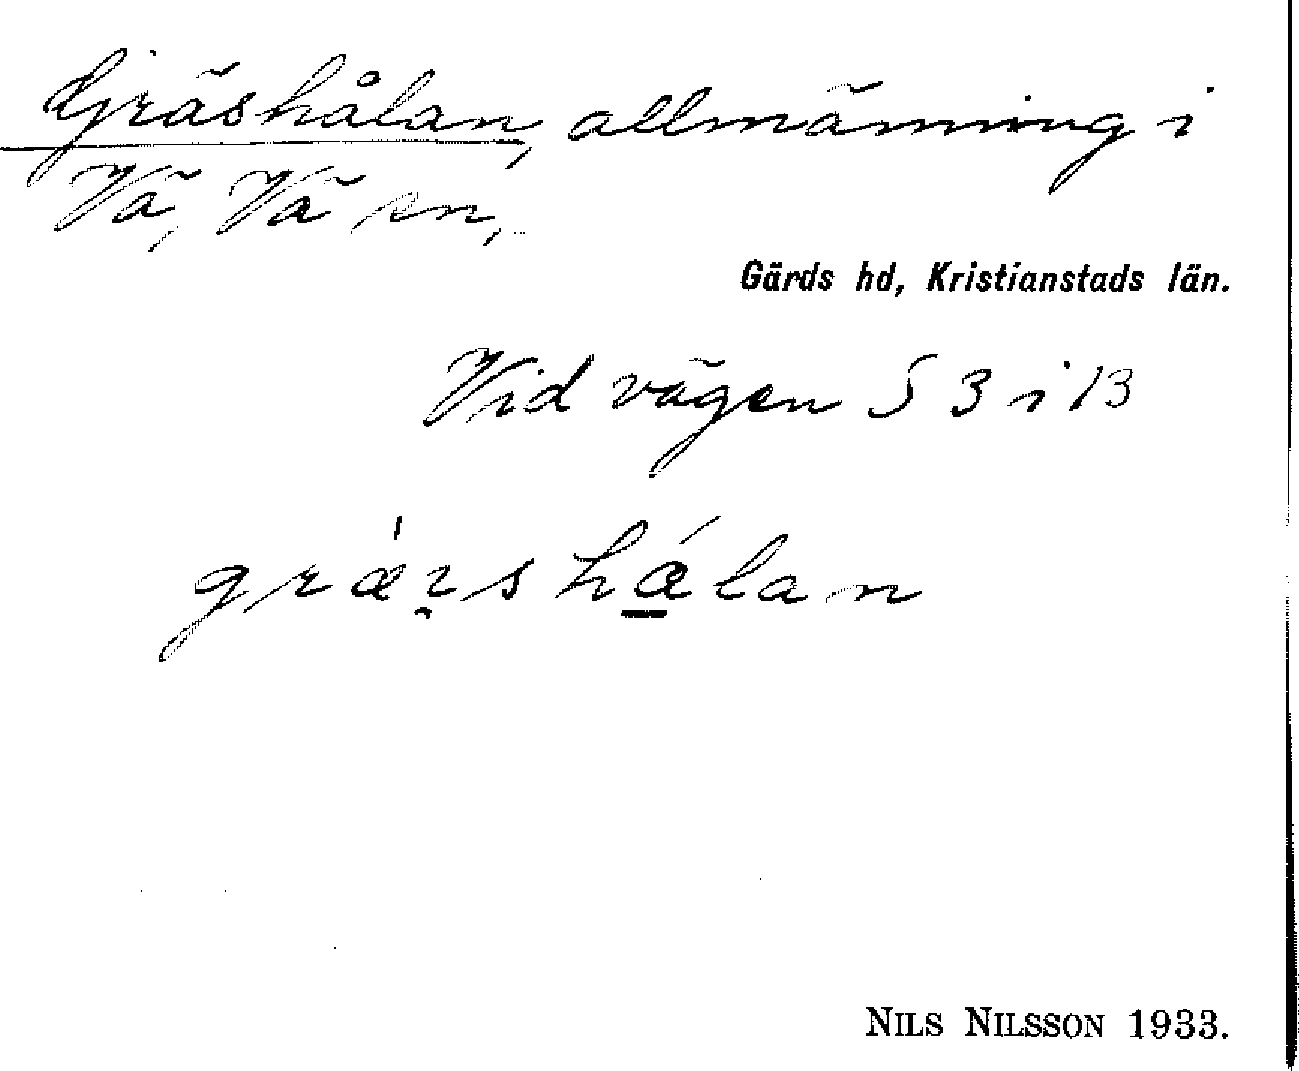 Gräshålan, allmänning i
Vä, Vä sn,
Gärds hd, Kristianstads län.
Vid vägen S 3 i 13
NILS NILSSON 1933.